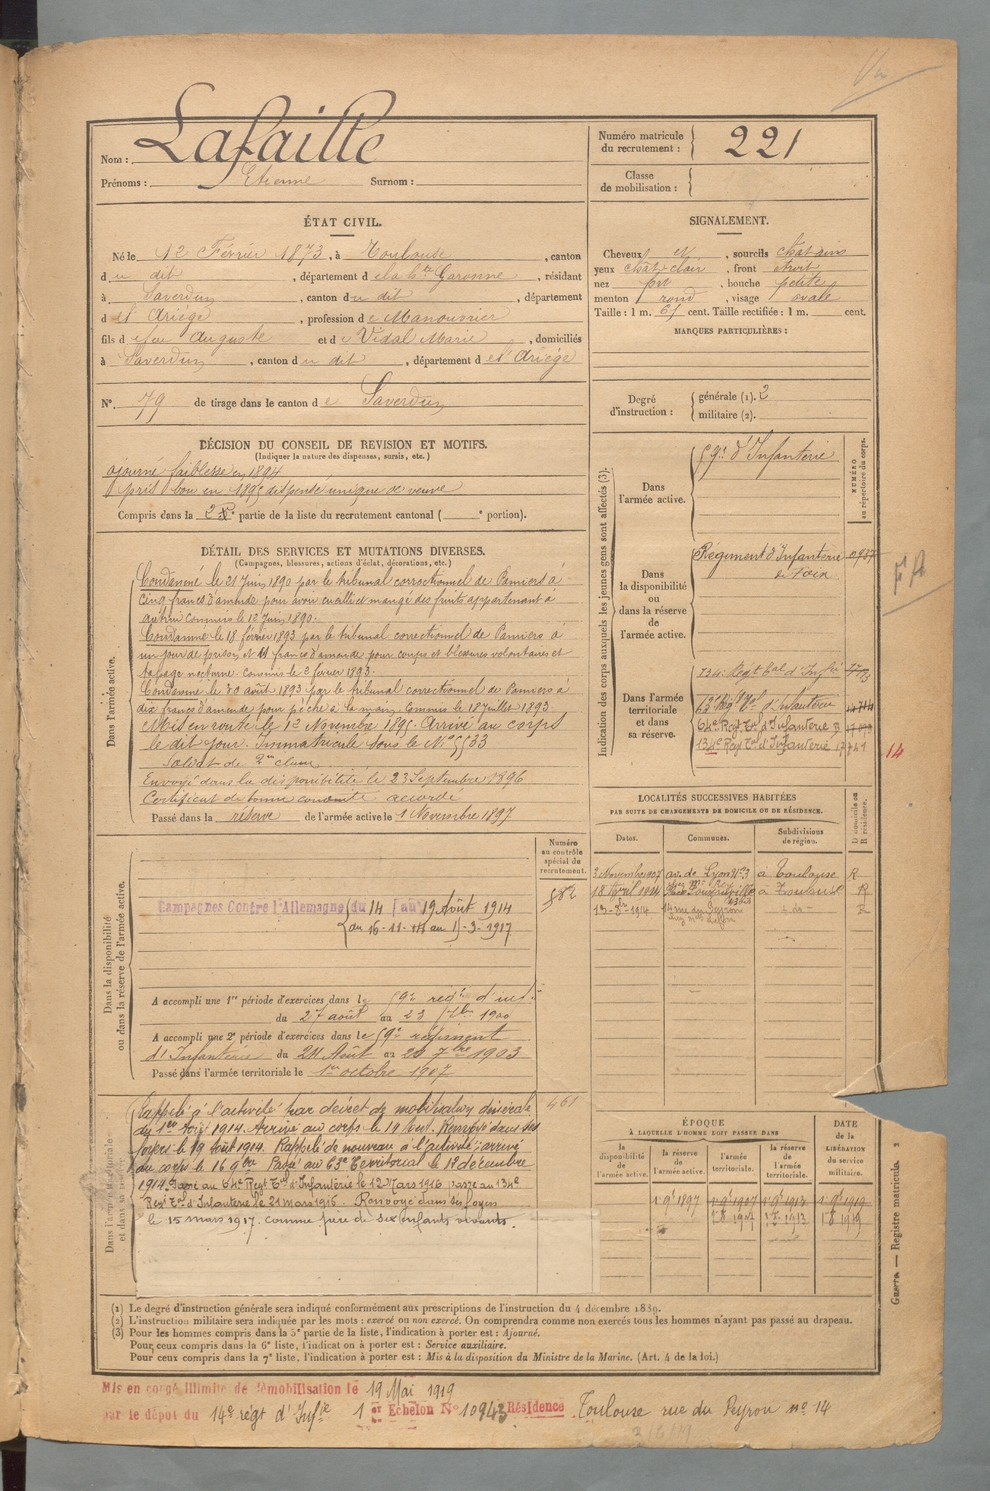 Nom : Lafaille
Prénoms : Etienne Surnom :
Numéro matricule du recrutement : 221
Classe de mobilisation :
ÉTAT CIVIL.
Né le 12 Février 1873, à Toulouse, canton
du dit, département de la hte Garonne, résidant
à Saverdun, canton du dit, département
de l'Ariège, profession de Manouvrier
fils de feu Auguste et de Vidal Marie, domiciliés
à Saverdun, canton du dit, département de l'Ariège
N°. 79 de tirage dans le canton de Saverdun
SIGNALEMENT.
Cheveux et, sourcils châtains
yeux chât. clair, front étroit
nez, bouche petite
menton rond, visage ovale
Taille : 1 m. 61 cent. Taille rectifiée : 1 m. cent.
MARQUES PARTICULIÈRES :
Degré d'instruction : générale (1). 2
militaire (2).
DÉCISION DU CONSEIL DE REVISION ET MOTIFS.
(Indiquer la nature des dispenses, sursis, etc.)
ajourné faiblesse en 1894
pris bon en 1895 dispensé unique de veuve
Compris dans la 2e partie de la liste du recrutement cantonal ( e portion).
DÉTAIL DES SERVICES ET MUTATIONS DIVERSES.
(Campagnes, blessures, actions d'éclat, décorations, etc.)
Dans l'armée active.
Condamné le 21 Juin 1890 par le tribunal correctionnel de Pamiers à
cinq francs d'amende pour avoir cueilli et mangé des fruits appartenant à
autrui commis le 12 Juin 1890.
Condamné le 18 février 1893 par le tribunal correctionnel de Pamiers à
un jour de prison et 11 francs d'amende pour coups et blessures volontaires et
tapage nocturne. Commis le 3 février 1893.
Condamné le 30 août 1893 par le tribunal correctionnel de Pamiers à
dix francs d'amende pour pêche à la main. Commis le 18 Juillet 1893.
Mis en route le 12 Novembre 1895. Arrivé au corps
le dit jour. Immatriculé sous le N° 5533
Soldat de 2me classe
Envoyé dans la disponibilité le 23 Septembre 1896
Certificat de bonne conduite : accordé
Passé dans la réserve de l'armée active le 1 Novembre 1897
Indication des corps auxquels les jeunes gens sont affectés (3).
NUMÉRO au répertoire du corps.
Dans l'armée active.
59e d'Infanterie
Dans la disponibilité ou dans la réserve de l'armée active.
Régiment d'Infanterie
de Foix
Dans l'armée territoriale et dans sa réserve.
134e Régt tal d'Infie
63 Rég Tal d'Infanterie
64e Regt Tal d'Infanterie
134e Regt Tal d'Infanterie
14
FA
LOCALITÉS SUCCESSIVES HABITÉES
PAR SUITE DE CHANGEMENTS DE DOMICILE OU DE RÉSIDENCE.
Dates. Communes. Subdivisions de région. D domicile ou R résidence.
3 Novembre 1907 av. de Lyon n° 3 à Toulouse R
18 Avril 1914 à Toulouse R
13-8-1914 14 rue du Peyrou
Dans la disponibilité ou dans la réserve de l'armée active.
Numéro au contrôle spécial du recrutement.
582
Campagnes Contre l'Allemagne du 14 au 19 Août 1914
du 16-11-14 au 15-3-1917
A accompli une 1re période d'exercices dans le 59e regt d'inf.
du 27 août au 23 7bre 1900
A accompli une 2e période d'exercices dans le 59e régiment
d'Infanterie du 24 Août au 20 7bre 1903
Passé dans l'armée territoriale le 1er octobre 1907
Dans l'armée territoriale et dans sa réserve
461
Rappelé à l'activité par décret de mobilisation générale
du 1er Août 1914. Arrivé au corps le 14 Août. Renvoyé dans ses
foyers le 19 Août 1914. Rappelé de nouveau à l'activité; arrivé
au corps le 16 9bre. Passé au 63e Territorial le 1er décembre
1914. Passé au 64e Regt Tal d'Infanterie le 12 Mars 1916 passé au 134e
Regt Tal d'Infanterie le 21 mars 1916. Renvoyé dans ses foyers
le 15 mars 1917. comme père de six enfants vivants.
ÉPOQUE
À LAQUELLE L'HOMME DOIT PASSER DANS
la disponibilité de l'armée active. la réserve de l'armée active. l'armée territoriale. la réserve de l'armée territoriale.
DATE de la LIBÉRATION du service militaire.
1 9e 1897 1 9e 1907 1 9e 1913 1 9e 1919
Guerre. — Registre matricule. 2
(1) Le degré d'instruction générale sera indiqué conformément aux prescriptions de l'instruction du 4 décembre 1889.
(2) L'instruction militaire sera indiquée par les mots : exercé ou non exercé. On comprendra comme non exercés tous les hommes n'ayant pas passé au drapeau.
(3) Pour les hommes compris dans la 5e partie de la liste, l'indication à porter est : Ajourné.
Pour ceux compris dans la 6e liste, l'indication à porter est : Service auxiliaire.
Pour ceux compris dans la 7e liste, l'indication à porter est : Mis à la disposition du Ministre de la Marine. (Art. 4 de la loi.)
Mis en congé illimité de démobilisation le 19 Mai 1919
par le dépôt du 14e régt d'Infie 1er Echelon N° 10943 Résidence Toulouse rue du Peyrou n° 14